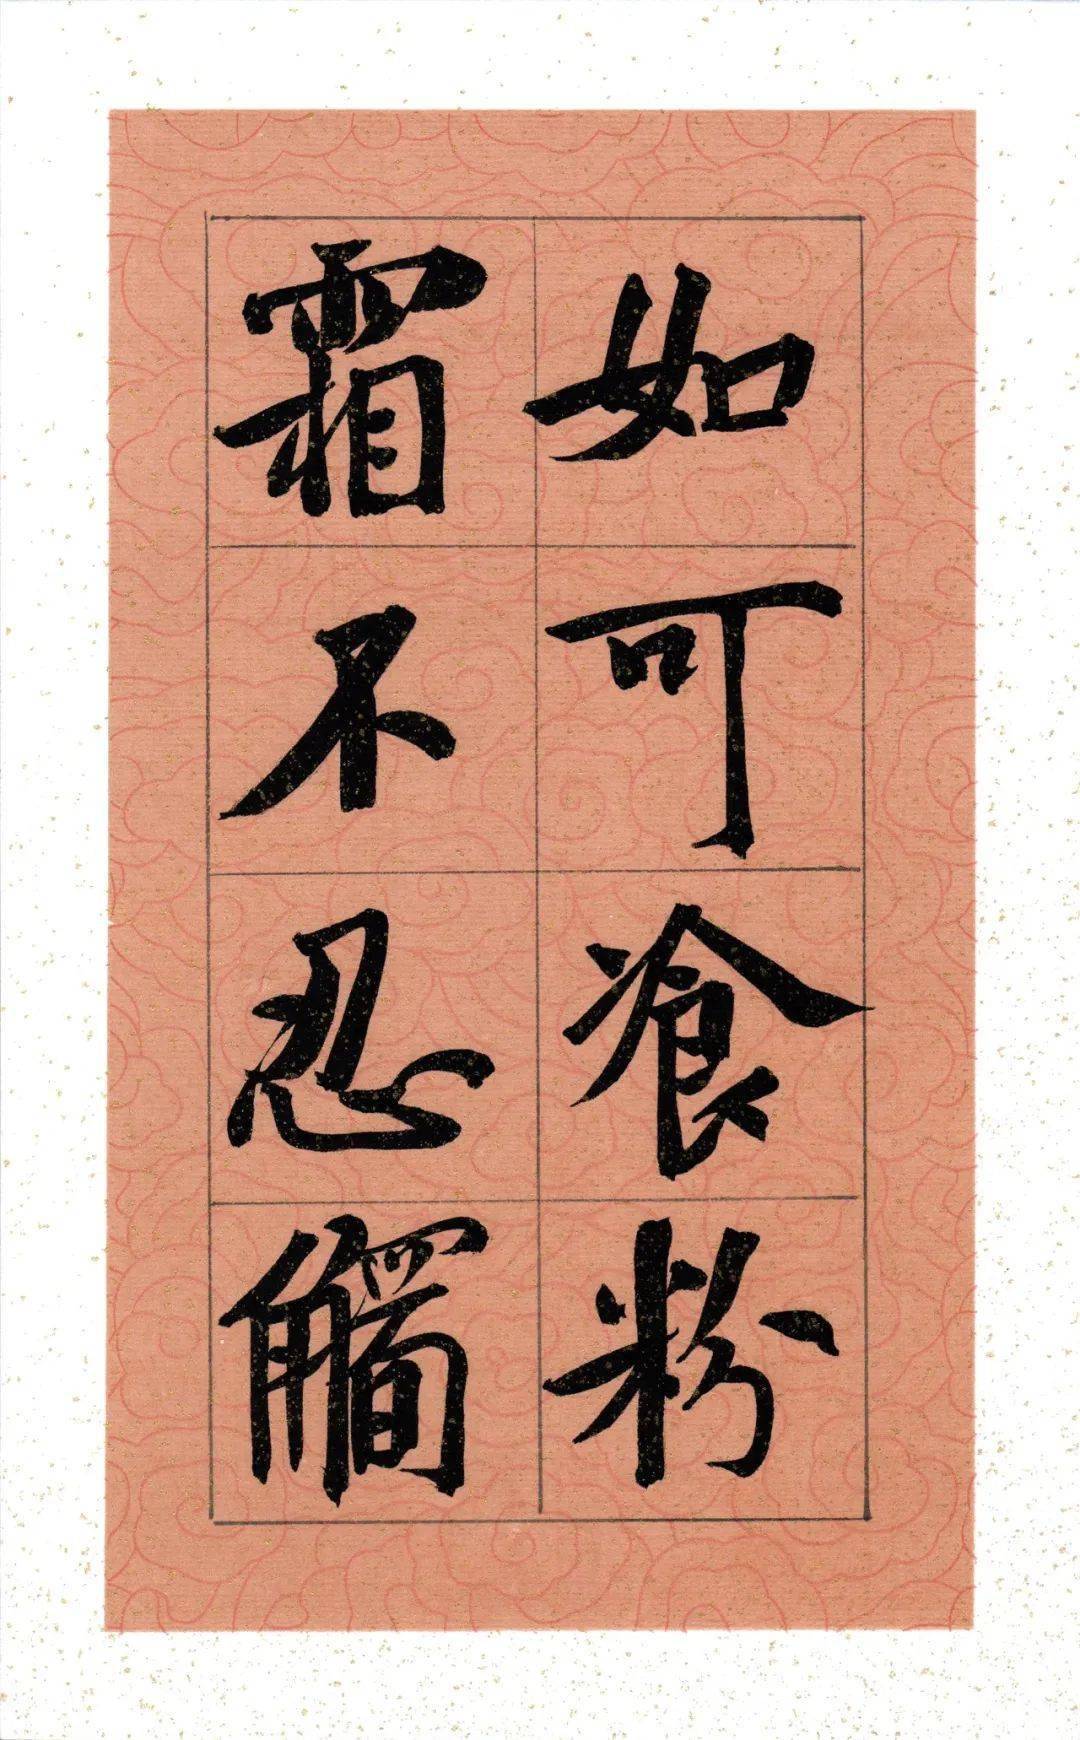 如可飡粉
霜不忍觸